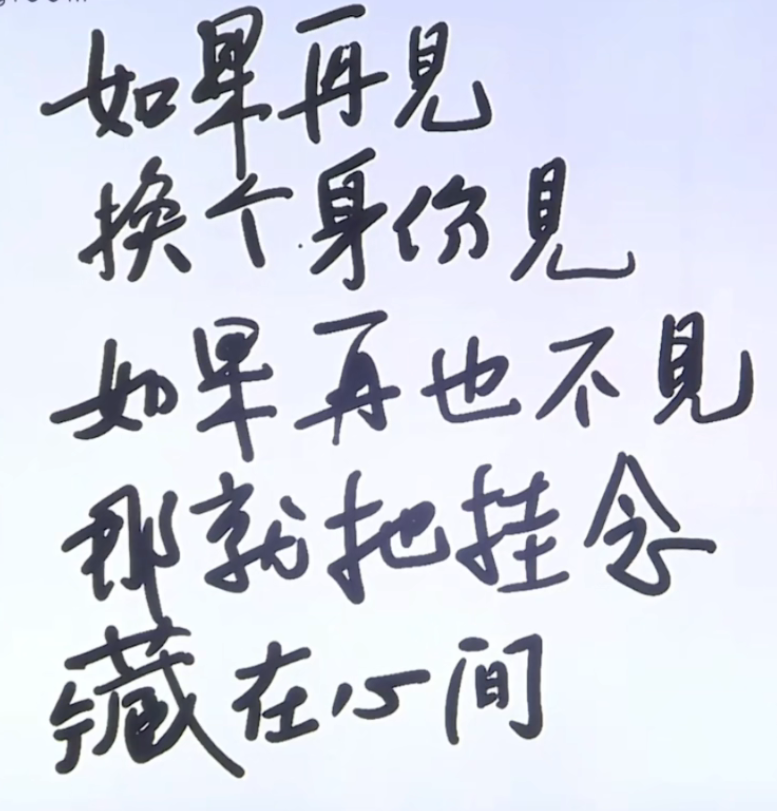 如果再見
换个身份見
如果再也不見
那就把挂念
藏在心间